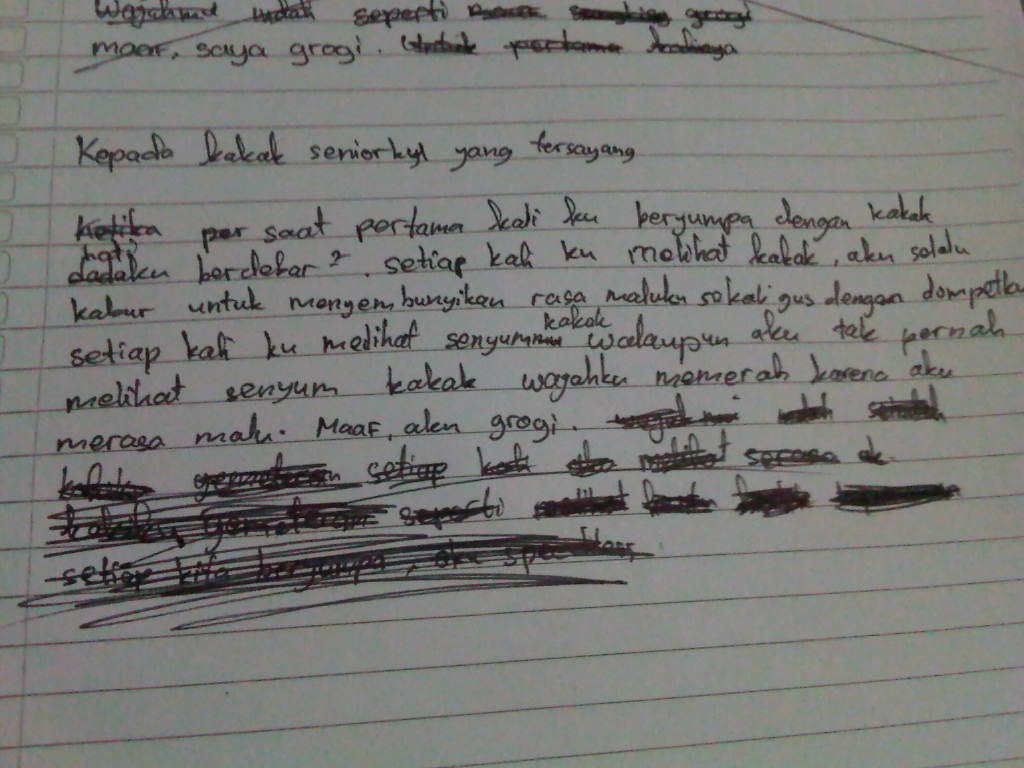 Wajahmu indah seperti
maaf, saya grogi. Untuk pertama kalinya
Kepada kakak seniorku yang tersayang
Ketika per saat pertama kali ku berjumpa dengan kakak
hati
dadaku berdebar². setiap kali ku melihat kakak, aku selalu
kabur untuk menyembunyikan rasa maluku sekaligus dengan dompetku
kakak
setiap kali ku melihat senyum walaupun aku tak pernah
melihat senyum kakak wajahku memerah karena aku
merasa malu. Maaf, aku grogi.
setiap
seperti
setiap kita berjumpa, aku